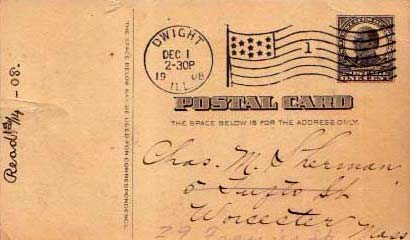 Read 12/4 - 08.
THE SPACE BELOW MAY BE USED FOR CORRESPONDENCE.
DWIGHT
DEC 1
2-30P
1908
ILL.
1
POSTAL CARD
ONE CENT
POSTAL CARD
THE SPACE BELOW IS FOR THE ADDRESS ONLY.
Chas. M. Sherman
5 St
Worcester Mass
29